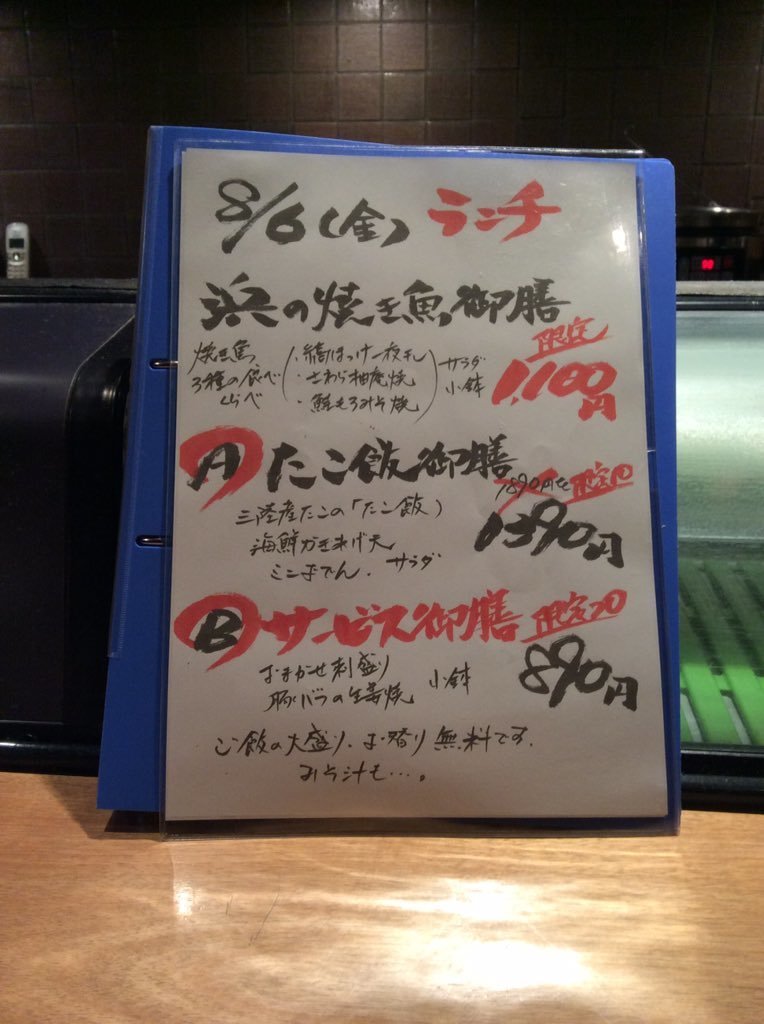 8/6(金) ランチ
浜の焼き魚御膳
限定
1,100円
焼き魚
3種の食べ
くらべ
・縞ほっけ一夜干し
・さわら柚庵焼
・鮭もろみみそ焼
サラダ
小鉢
A たこ飯御膳
限定10
1390円
三陸産たこの「たこ飯」
海鮮かきあげ天
ミニおでん、サラダ
B サービス御膳 限定20
890円
おまかせ刺盛り
豚バラの生姜焼
小鉢
ご飯の大盛り、お替り無料です。
みそ汁も…。